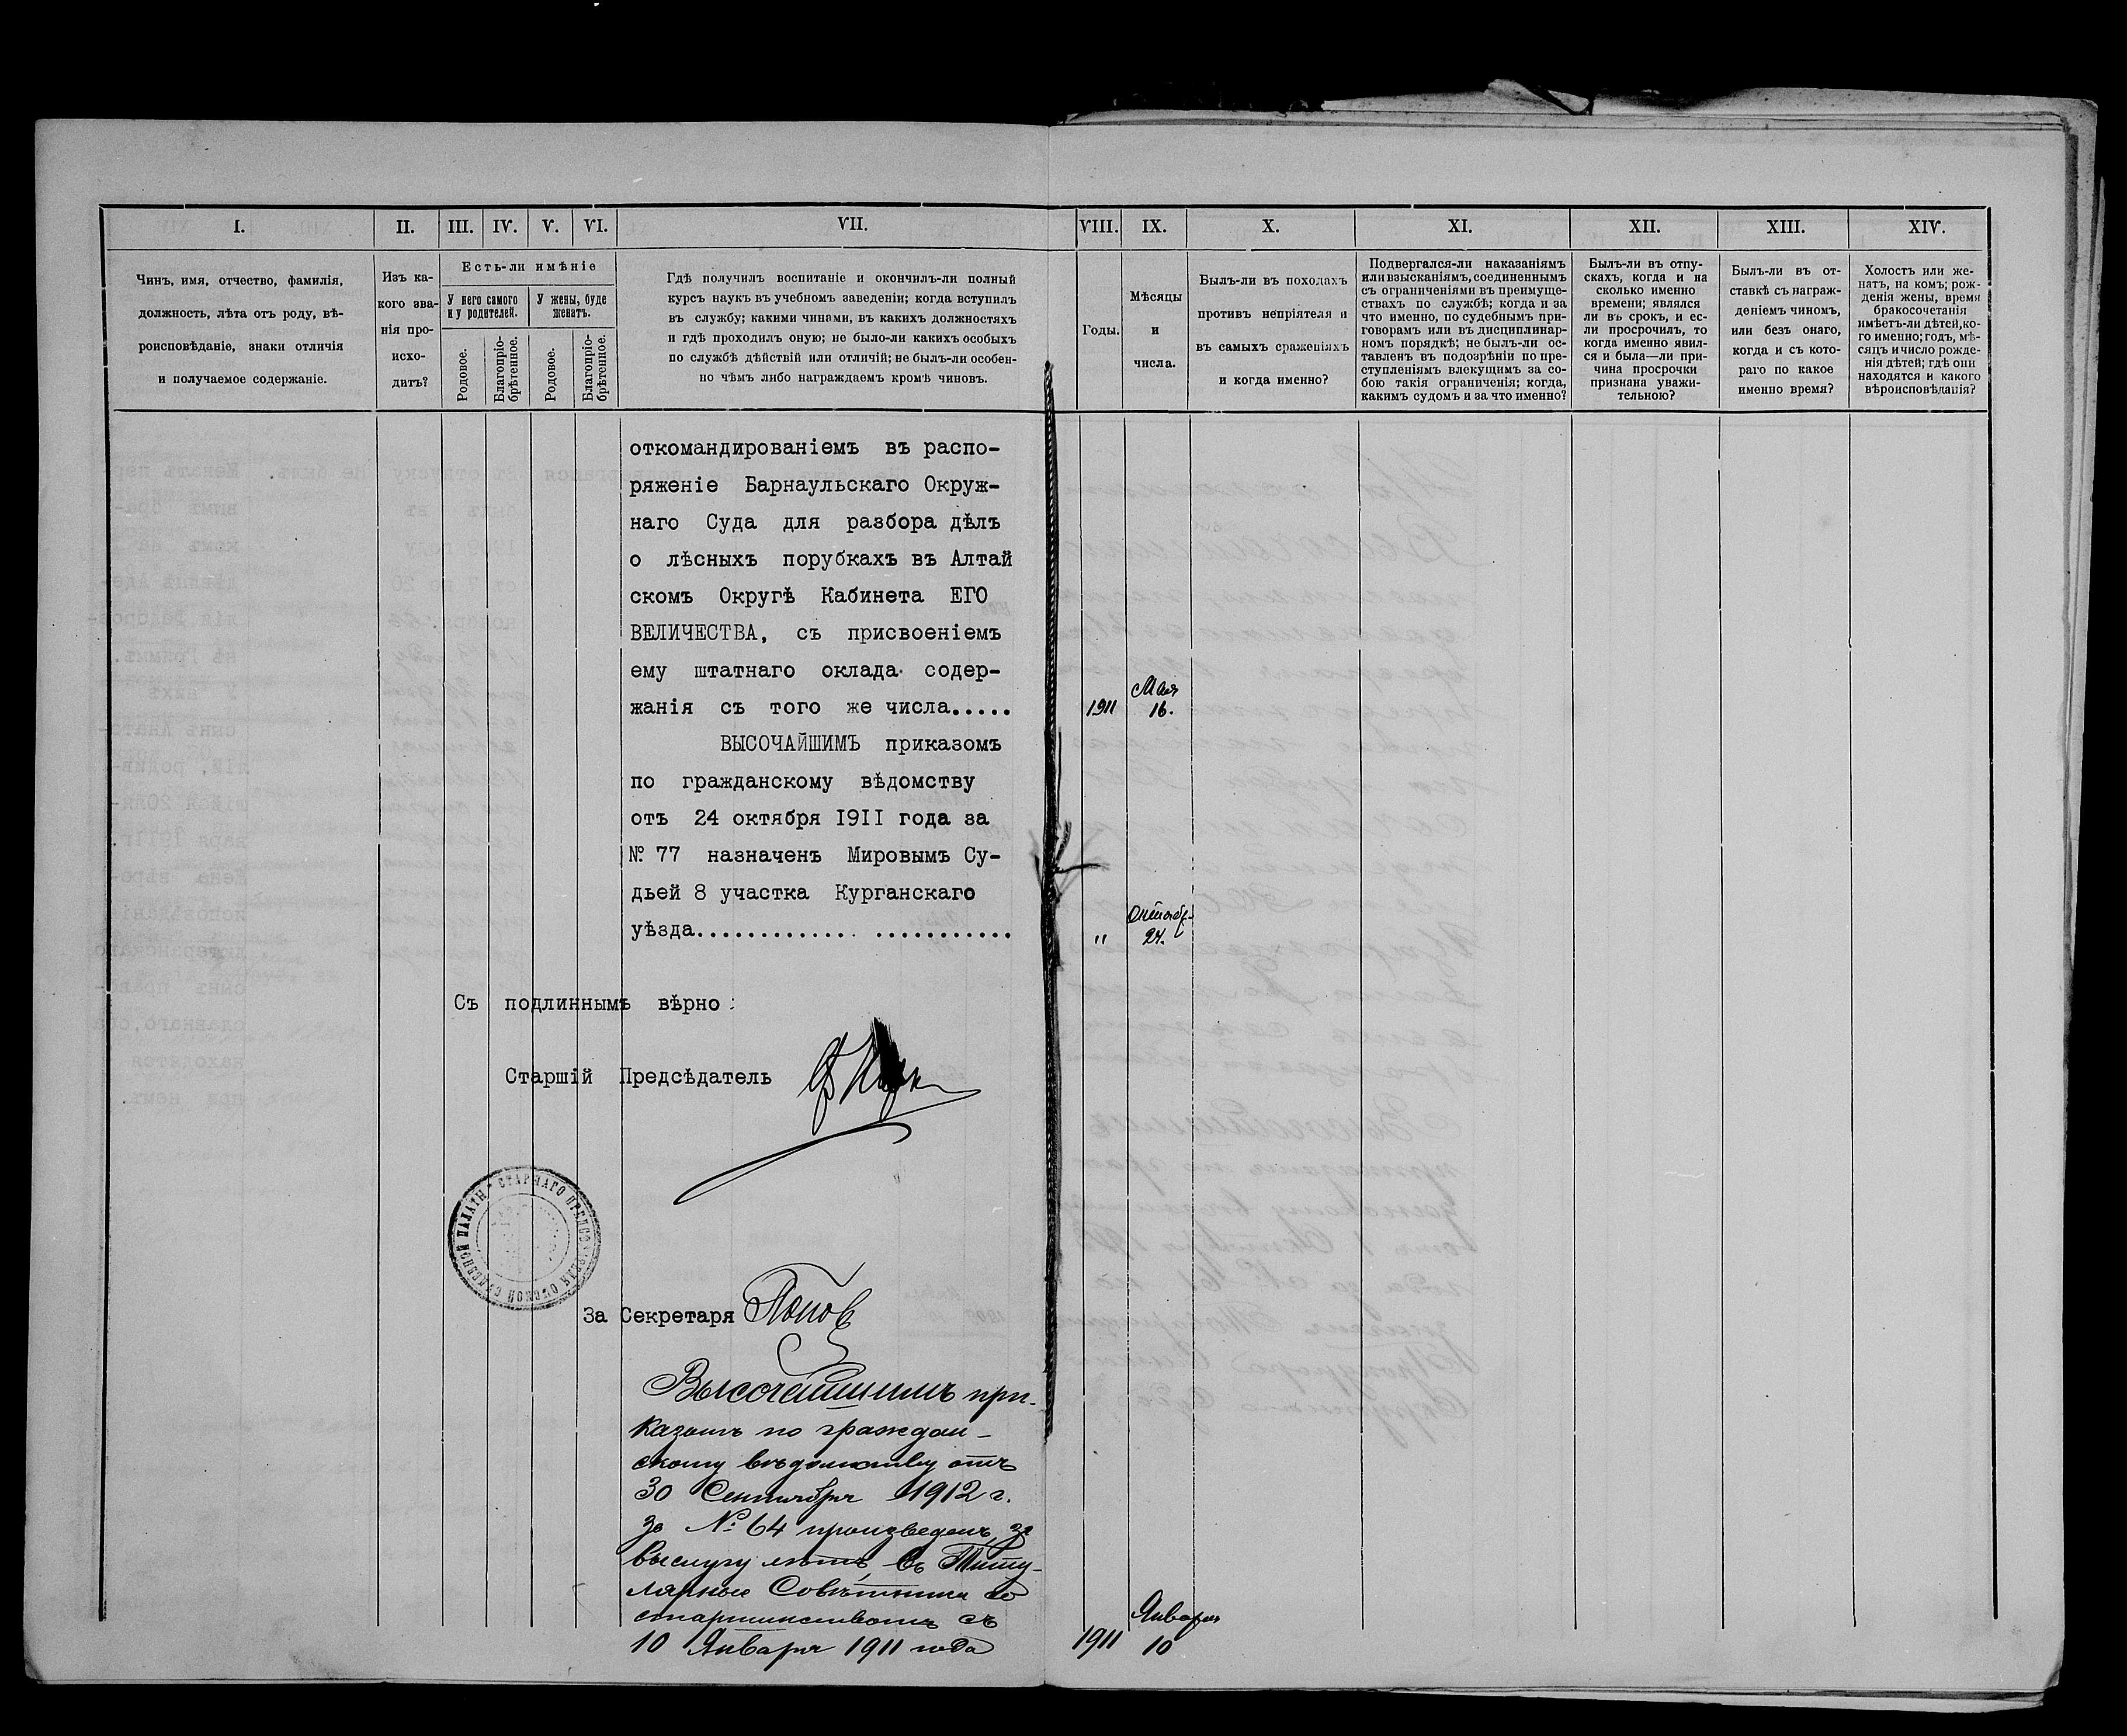 I.
II.
III.
IV.
V.
VI.
VII.
VIII.
IX.
X.
XI.
XII.
XIII.
XIV.
Чинъ, имя, отчество, фамилія,
должность, лѣта отъ роду, вѣ-
роисповѣданіе, знаки отличія
и получаемое содержаніе.
Изъ ка-
кого зва-
нія про-
исхо-
дитъ?
Есть-ли имѣніе
У него самого
и у родителей.
У жены, буде
женатъ.
Родовое.
Благопріо-
брѣтенное.
Родовое.
Благопріо-
брѣтенное.
Гдѣ получилъ воспитаніе и окончилъ-ли полный
курсъ наукъ въ учебномъ заведеніи; когда вступилъ
въ службу; какими чинами, въ какихъ должностяхъ
и гдѣ проходилъ оную; не было-ли какихъ особыхъ
по службѣ дѣйствій или отличій; не былъ-ли особен-
но чѣмъ либо награждаемъ кромѣ чиновъ.
Годы.
Мѣсяцы
и
числа.
Былъ-ли въ походахъ
противъ непріятеля и
въ самыхъ сраженіяхъ
и когда именно?
Подвергался-ли наказаніямъ
или взысканіямъ, соединеннымъ
съ ограниченіями въ преимуще-
ствахъ по службѣ; когда и за
что именно, по судебнымъ при-
говорамъ или въ дисциплинар-
номъ порядкѣ; не былъ-ли ос-
тавленъ въ подозрѣніи по пре-
ступленіямъ влекущимъ за со-
бою такія ограниченія; когда,
какимъ судомъ и за что именно?
Былъ-ли въ отпу-
скахъ, когда и на
сколько именно
времени; являлся
ли въ срокъ, и ес-
ли просрочилъ, то
когда именно явил-
ся и была—ли при-
чина просрочки
признана уважи-
тельною?
Былъ-ли въ от-
ставкѣ съ награж-
деніемъ чиномъ,
или безъ онаго,
когда и съ кото-
раго по какое
именно время?
Холостъ или же-
натъ, на комъ; рож-
денія жены, время
бракосочетанія
имѣетъ-ли дѣтей, ко-
го именно; годъ, мѣ-
сяцъ и число рожде-
нія дѣтей; гдѣ они
находятся и какого
вѣроисповѣданія?
откомандированіемъ въ распо-
ряженіе Барнаульскаго Окруж-
наго Суда для разбора дѣлъ
о лѣсныхъ порубкахъ въ Алтай
скомъ Округѣ Кабинета ЕГО
ВЕЛИЧЕСТВА, съ присвоеніемъ
ему штатнаго оклада содер-
жанія съ того же числа.....
1911
Мая
16.
ВЫСОЧАЙШИМЪ приказомъ
по гражданскому вѣдомству
отъ 24 октября 1911 года за
№ 77 назначенъ Мировымъ Су-
дьей 8 участка Курганскаго
уѣзда.......................
"
Октябр.
24.
Съ подлиннымъ вѣрно:
Старшій Предсѣдатель
За Секретаря Попов
Высочайшимъ при-
казомъ по граждан-
скому вѣдомству отъ
30 Сентября 1912 г.
за № 64 произведенъ, за
выслугу лѣтъ, въ Титу-
лярные Совѣтники со
старшинствомъ съ
10 Января 1911 года
1911
Января
10